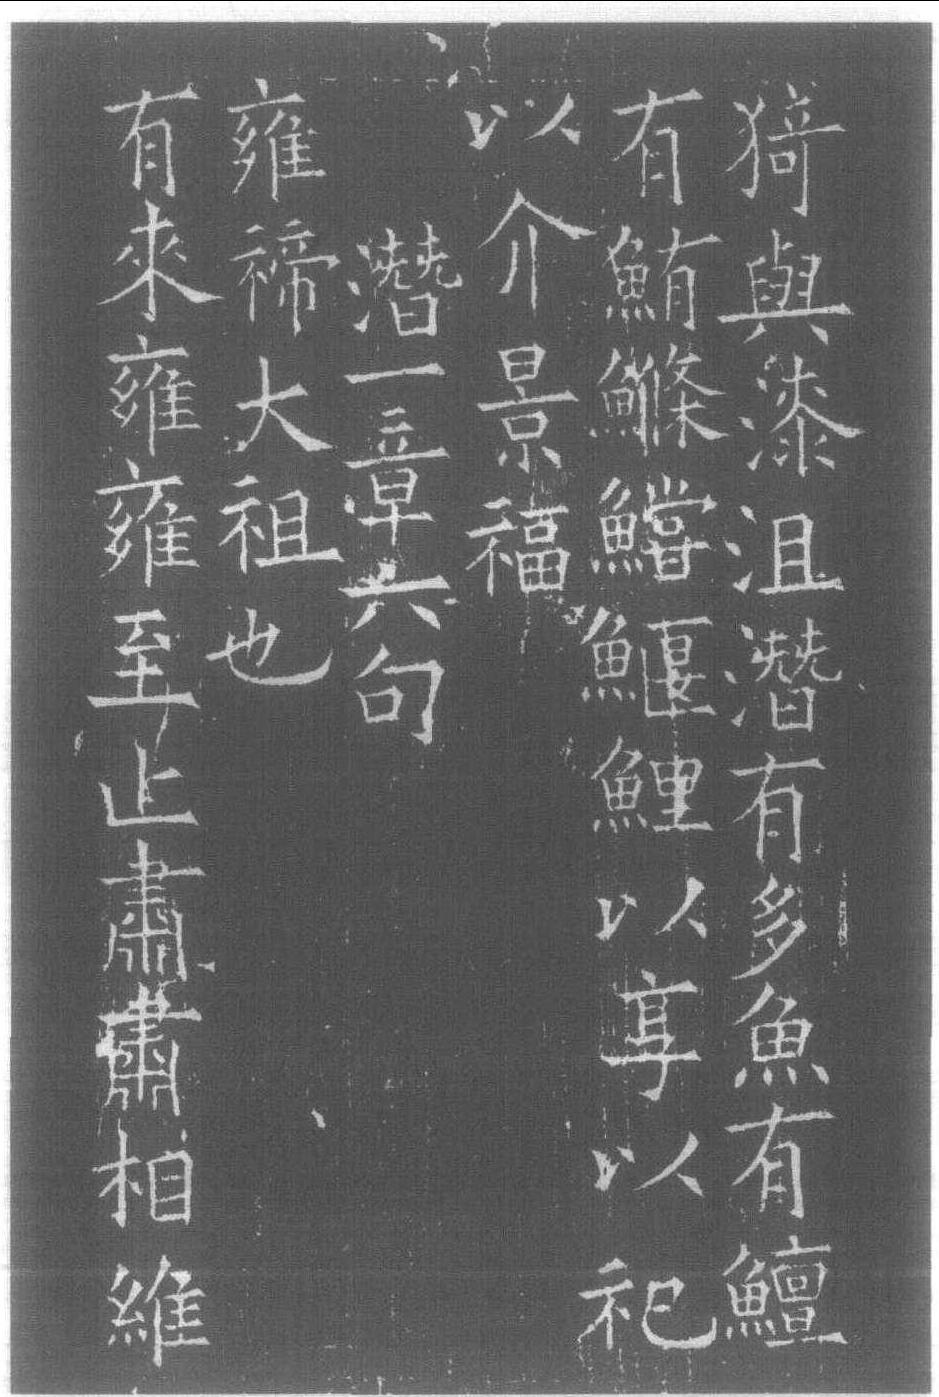 猗與漆沮潛有多魚有鱣
有鮪鰷鱨鰋鯉以享以祀
以介景福
潛一章六句
雍禘大祖也
有來雍雍至止肅肅相維